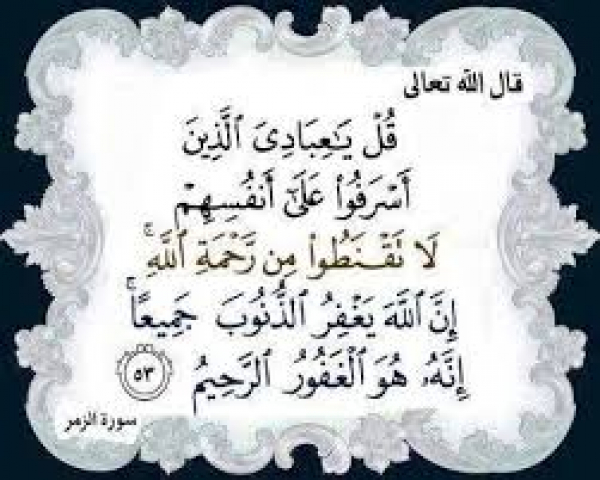 قال الله تعالى
قُلْ يَـٰعِبَادِىَ ٱلَّذِينَ
أَسْرَفُوا۟ عَلَىٰٓ أَنفُسِهِمْ
لَا تَقْنَطُوا۟ مِن رَّحْمَةِ ٱللَّهِ ۚ
إِنَّ ٱللَّهَ يَغْفِرُ ٱلذُّنُوبَ جَمِيعًا ۚ
إِنَّهُۥ هُوَ ٱلْغَفُورُ ٱلرَّحِيمُ ٥٣
سورة الزمر